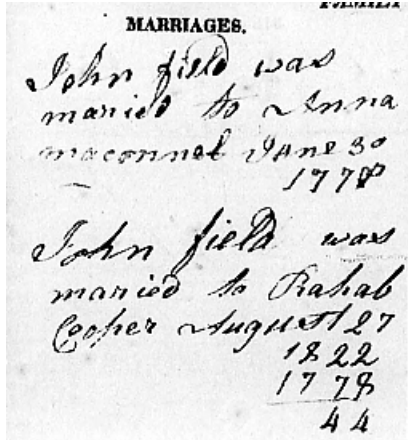 FAMILY
MARRIAGES.
John field was
maried to Anna
maconnel June 30
1778
John field was
maried to Rahab
Cooper August 27
1822
1778
44